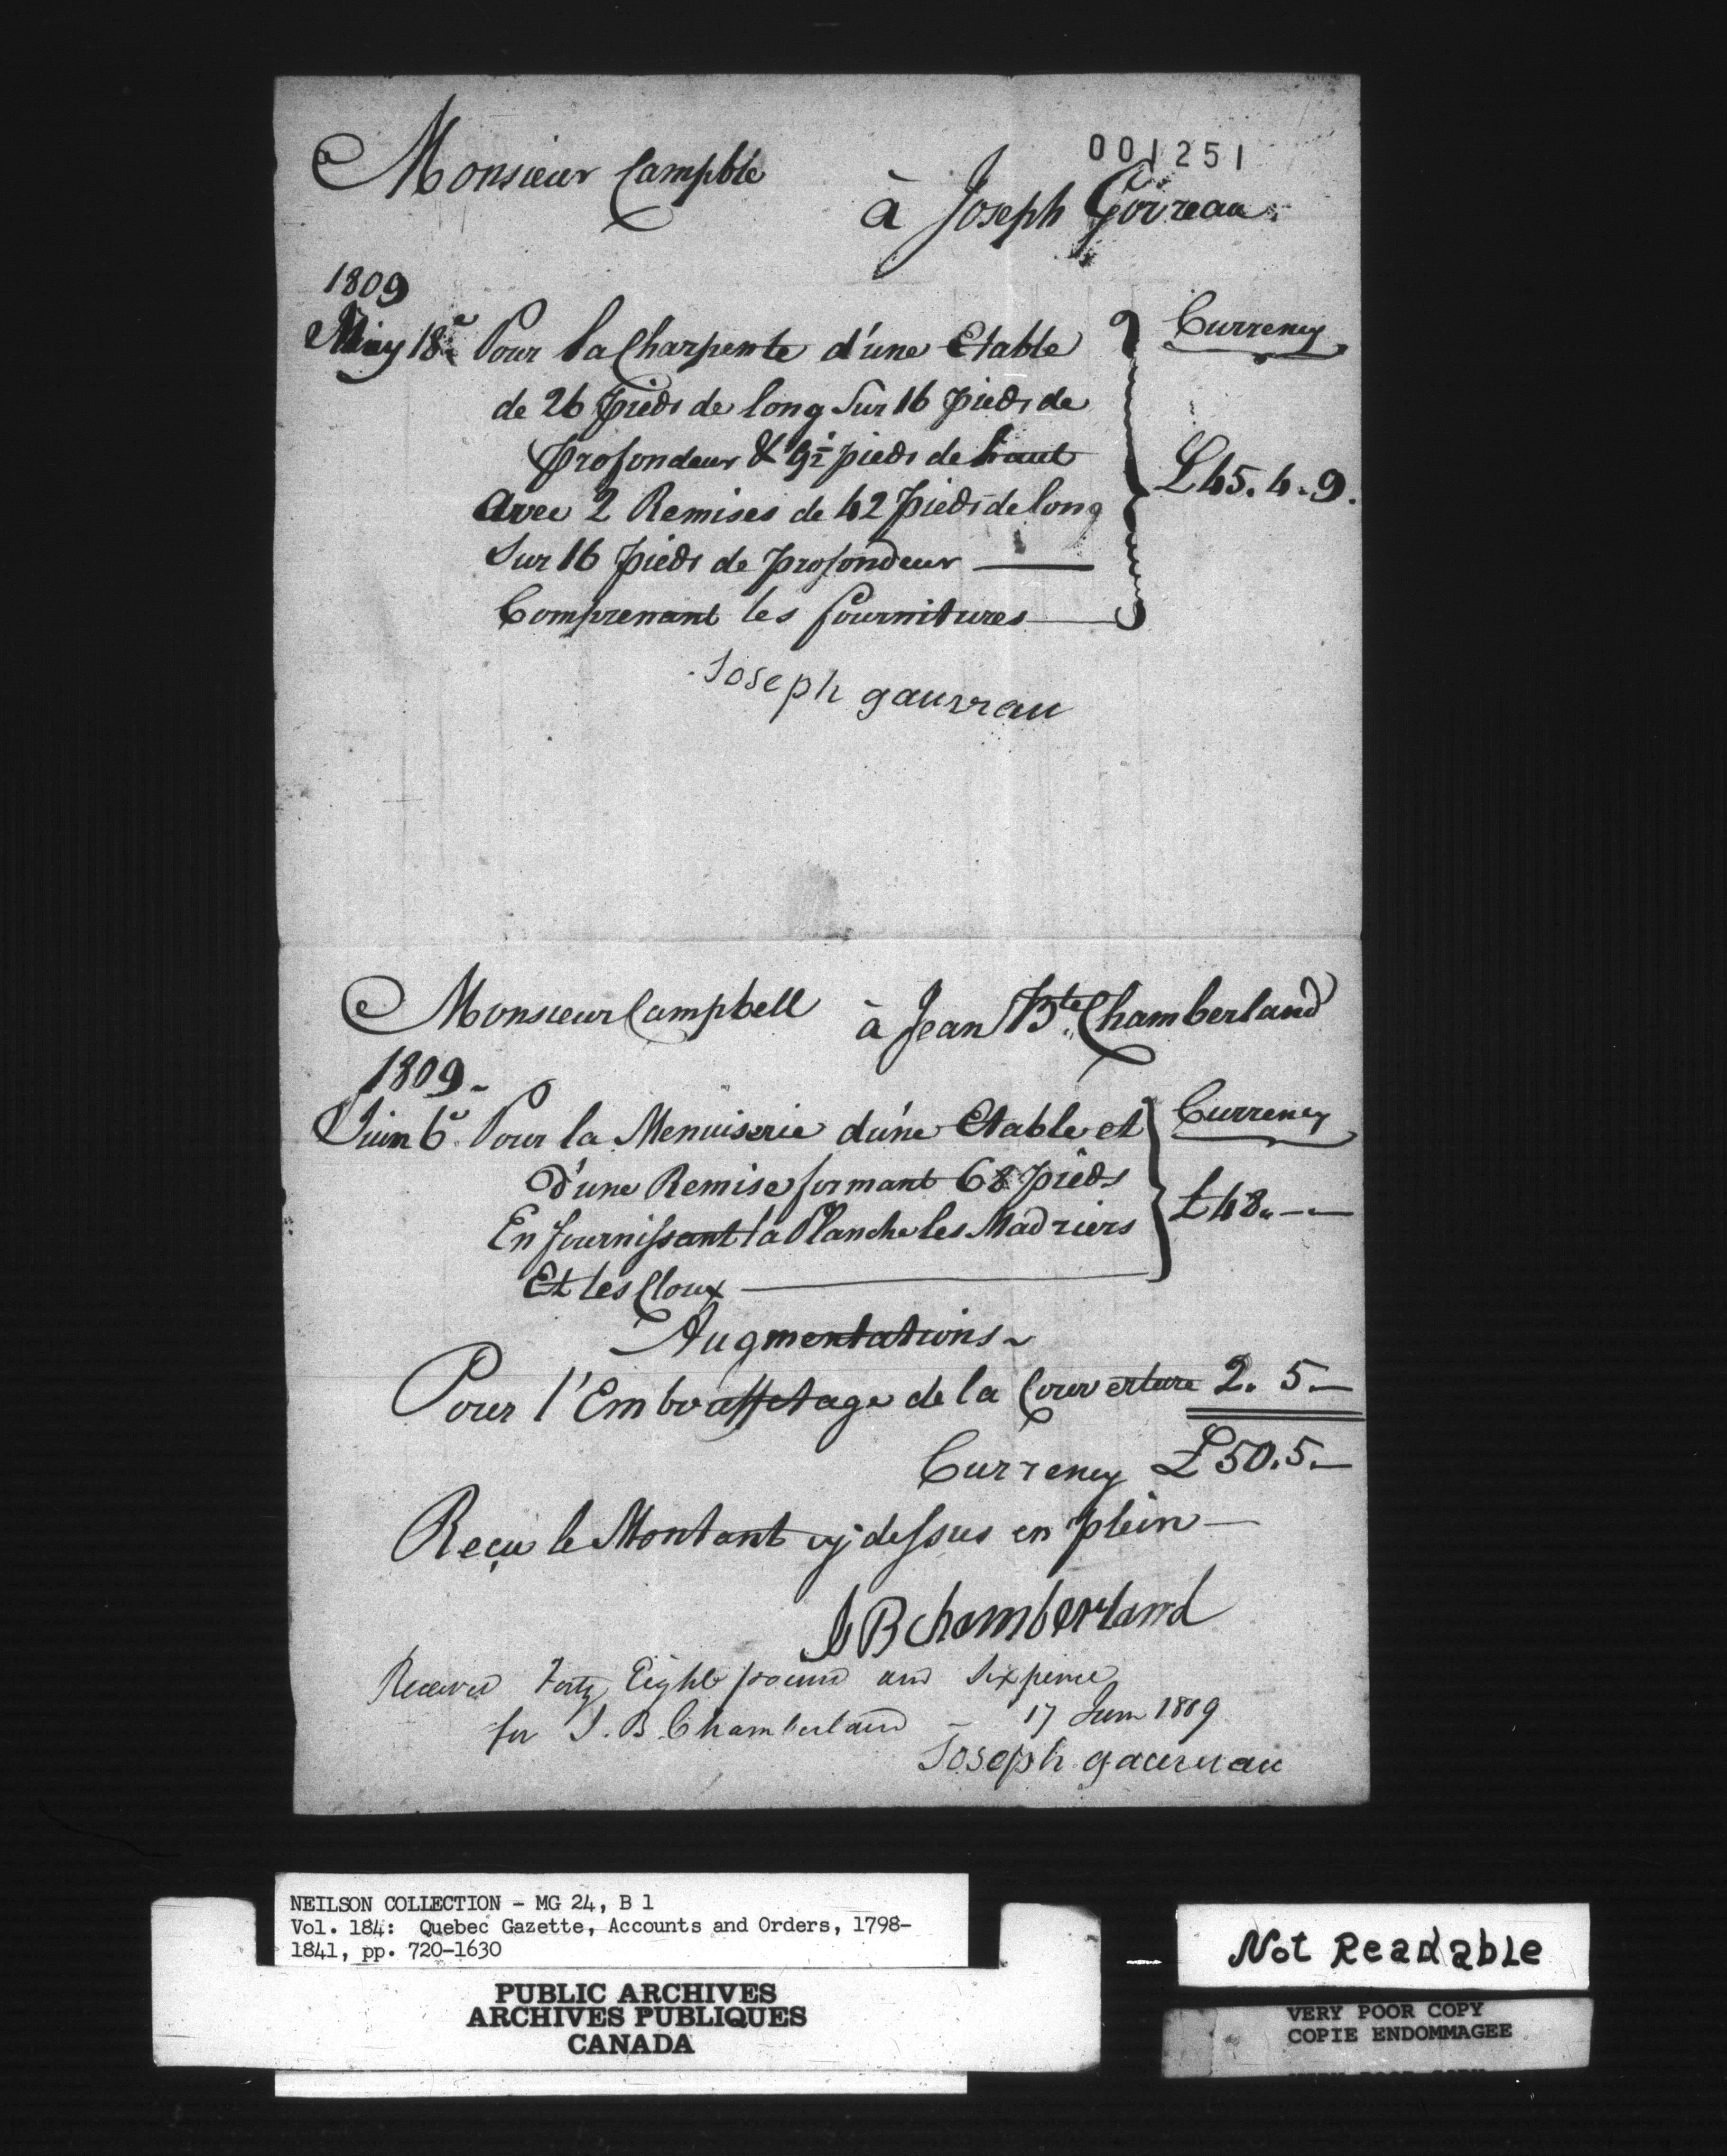 001251
Monsieur Campble
à Joseph Govreau
1809
May 18e Pour la Charpente d'une Etable
Currency
de 26 pieds de long Sur 16 pieds de
profondeur & 9½ pieds de haut
£45.4.9.
Avec 2 Remises de 42 pieds de long
Sur 16 pieds de profondeur
Comprenant les fournitures
Joseph gaurrau
Monsieur Campbell à Jean Bte. Chamberland
1809
Juin 6e Pour la Menuiserie d'une Etable et
Currency
d'une Remise formant 68 pieds
£48.--
En fournissant la Planche les Madriers
Et les Cloux
Augmentations
Pour l'Embouffetage de la Couverture 2. 5.-
Currency £50.5.-
Reçu le Montant cy dessus en plein
JB chamberland
Received Forty Eight pound and Sixpence
for J. B. Chamberland - 17 Jun 1809
Joseph gaurrau
NEILSON COLLECTION - MG 24, B 1
Vol. 184: Quebec Gazette, Accounts and Orders, 1798-
1841, pp. 720-1630
PUBLIC ARCHIVES
ARCHIVES PUBLIQUES
CANADA
Not Readable
VERY POOR COPY
COPIE ENDOMMAGEE